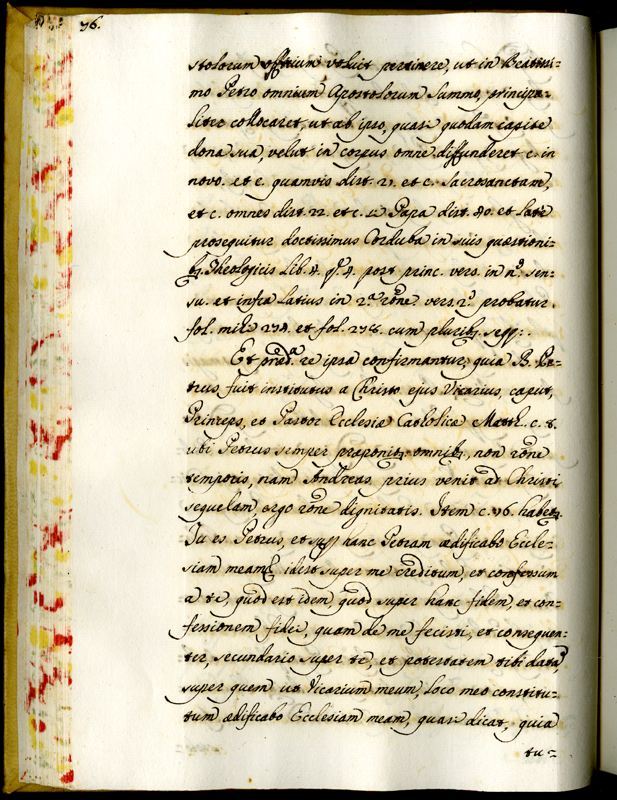 76.
stolorum offitium voluit pertinere, ut in Beatissi=
mo Petro omnium Apostolorum Summo, principa=
liter collocaret, ut ab ipso, quasi quodam capite
dona sua, velut in corpus omne diffunderet c. in
novo. et c. quamvis dist. 21. et c. Sacrosanctam,
et c. omnes dist. 22. et c. Papa dist. 40. et late
prosequitur doctissimus Corduba in suis quæstioni=
bȝ. Theologicis Lib. 4. qº. 4. post princ. vers. in nº. sen=
su. et infra latius in 2ª. rõne. vers. 2º. probatur.
fol. mihi 234. et fol. 238. cum pluribȝ. seqq:.
Et prædª. re ipsa confirmantur, quia B. Pe=
trus fuit institutus a Christo ejus Vicarius, caput,
Princeps, et Pastor Ecclesia Catholica Matth. c. 8.
ubi Petrus semper proponitȝ. omnibȝ, non rõne
temporis, nam Andreas prius venit ad Christi
sequelam, ergo rõne dignitatis. Item c. 76. habetȝ.
Tu es Petrus, et supȝ hanc Petram ædificabo Eccle=
siam meam, idest super me creditum, et confessum
a te, quod est idem, quod super hanc fidem, et con=
fessionem fidei, quam de me fecisti, et consequen=
ter, secundario super te, et potestatem tibi datã,
super quem ut Vicarium meum, loco meo constitu=
tum ædificabo Ecclesiam meam, quasi dicat, quia
tu=